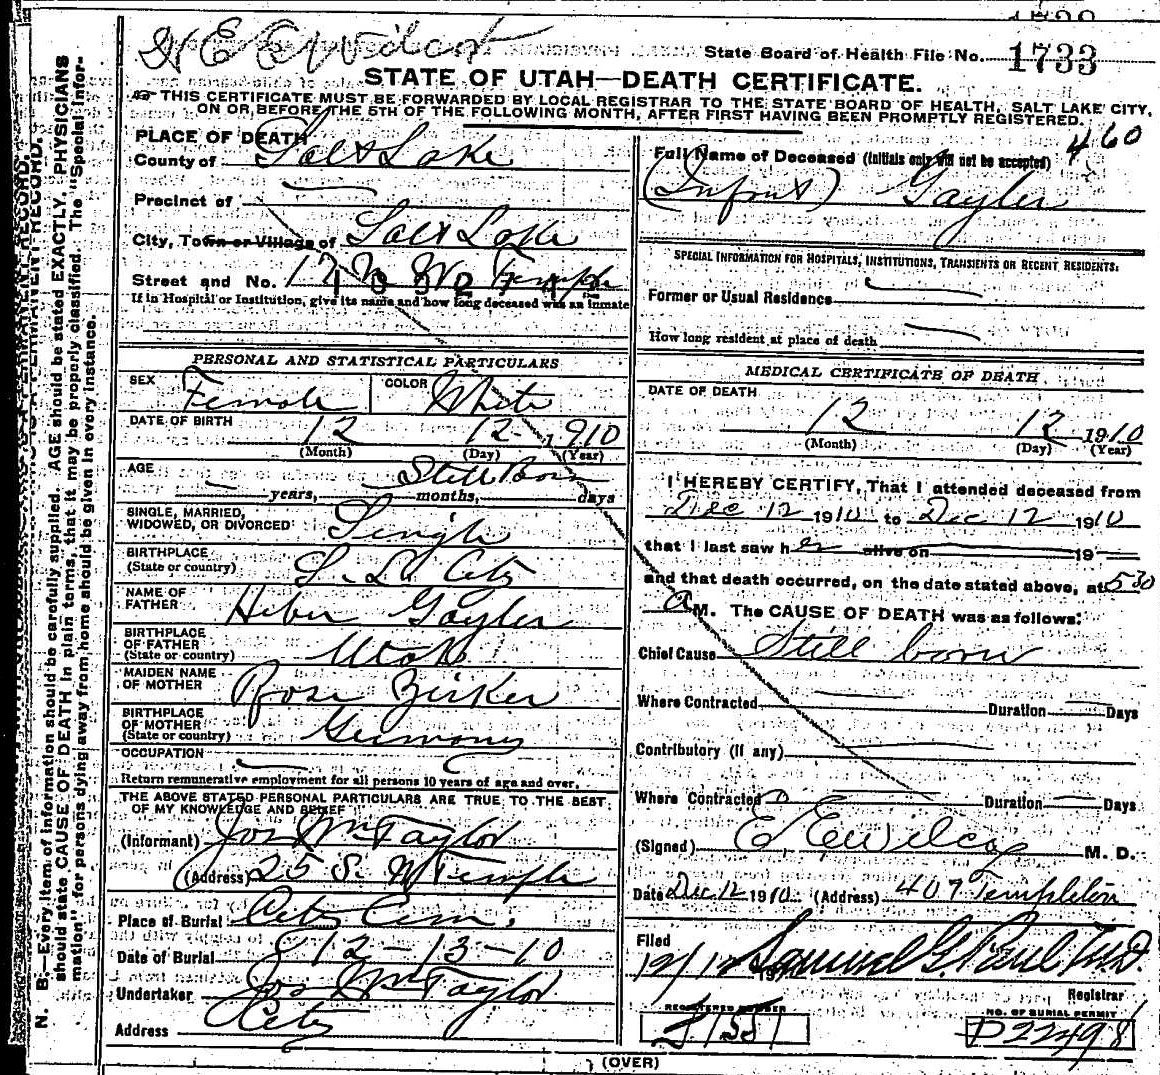 State Board of Health File No. 1733
STATE OF UTAH—DEATH CERTIFICATE.
THIS CERTIFICATE MUST BE FORWARDED BY LOCAL REGISTRAR TO THE STATE BOARD OF HEALTH, SALT LAKE CITY,
ON OR BEFORE THE 5TH OF THE FOLLOWING MONTH, AFTER FIRST HAVING BEEN PROMPTLY REGISTERED.
460
PLACE OF DEATH
County of Salt Lake
Precinct of
City, Town or Village of Salt Lake
Street and No. W Temple
If in Hospital or Institution, give its name and how long deceased was an inmate
PERSONAL AND STATISTICAL PARTICULARS
SEX Female COLOR White
DATE OF BIRTH 12 12 1910
(Month) (Day) (Year)
AGE Still Born
years, months, days
SINGLE, MARRIED,
WIDOWED, OR DIVORCED Single
BIRTHPLACE
(State or country) S. L. City
NAME OF
FATHER Heber Gayler
BIRTHPLACE
OF FATHER
(State or country) Utah
MAIDEN NAME
OF MOTHER Rose Zirker
BIRTHPLACE
OF MOTHER
(State or country) Germany
OCCUPATION
Return remunerative employment for all persons 10 years of age and over.
THE ABOVE STATED PERSONAL PARTICULARS ARE TRUE TO THE BEST
OF MY KNOWLEDGE AND BELIEF
(Informant) Jos Wm Taylor
(Address) 25 S. W Temple
Place of Burial City Cem.
Date of Burial 12-13-10
Undertaker Jos Wm Taylor
Address City
Full Name of Deceased (Initials only will not be accepted)
(Infant) Gayler
SPECIAL INFORMATION FOR HOSPITALS, INSTITUTIONS, TRANSIENTS OR RECENT RESIDENTS:
Former or Usual Residence
How long resident at place of death
MEDICAL CERTIFICATE OF DEATH
DATE OF DEATH
12 12 1910
(Month) (Day) (Year)
I HEREBY CERTIFY, That I attended deceased from
Dec 12 1910 to Dec 12 1910
that I last saw her alive on 19
and that death occurred, on the date stated above, at 530
a M. The CAUSE OF DEATH was as follows:
Chief Cause Still born
Where Contracted Duration Days
Contributory (if any)
Where Contracted Duration Days
(Signed) E. E. Wilcox M. D.
Date Dec 12 1910 (Address) 407 Templeton
Filed
12/12 Samuel G. Paul M.D.
Registrar
REGISTERED NUMBER
NO. OF BURIAL PERMIT
D22498
(OVER)
N. B.—Every item of information should be carefully supplied. AGE should be stated EXACTLY. PHYSICIANS
should state CAUSE OF DEATH in plain terms, that it may be properly classified. The "Special Infor-
mation" for persons dying away from home should be given in every instance.